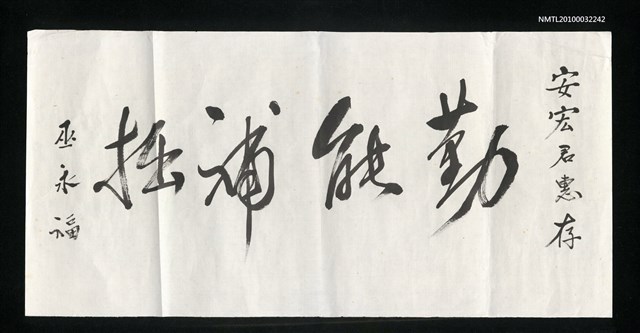 NMTL20100032242
安宏君惠存
勤能補拙
巫永福